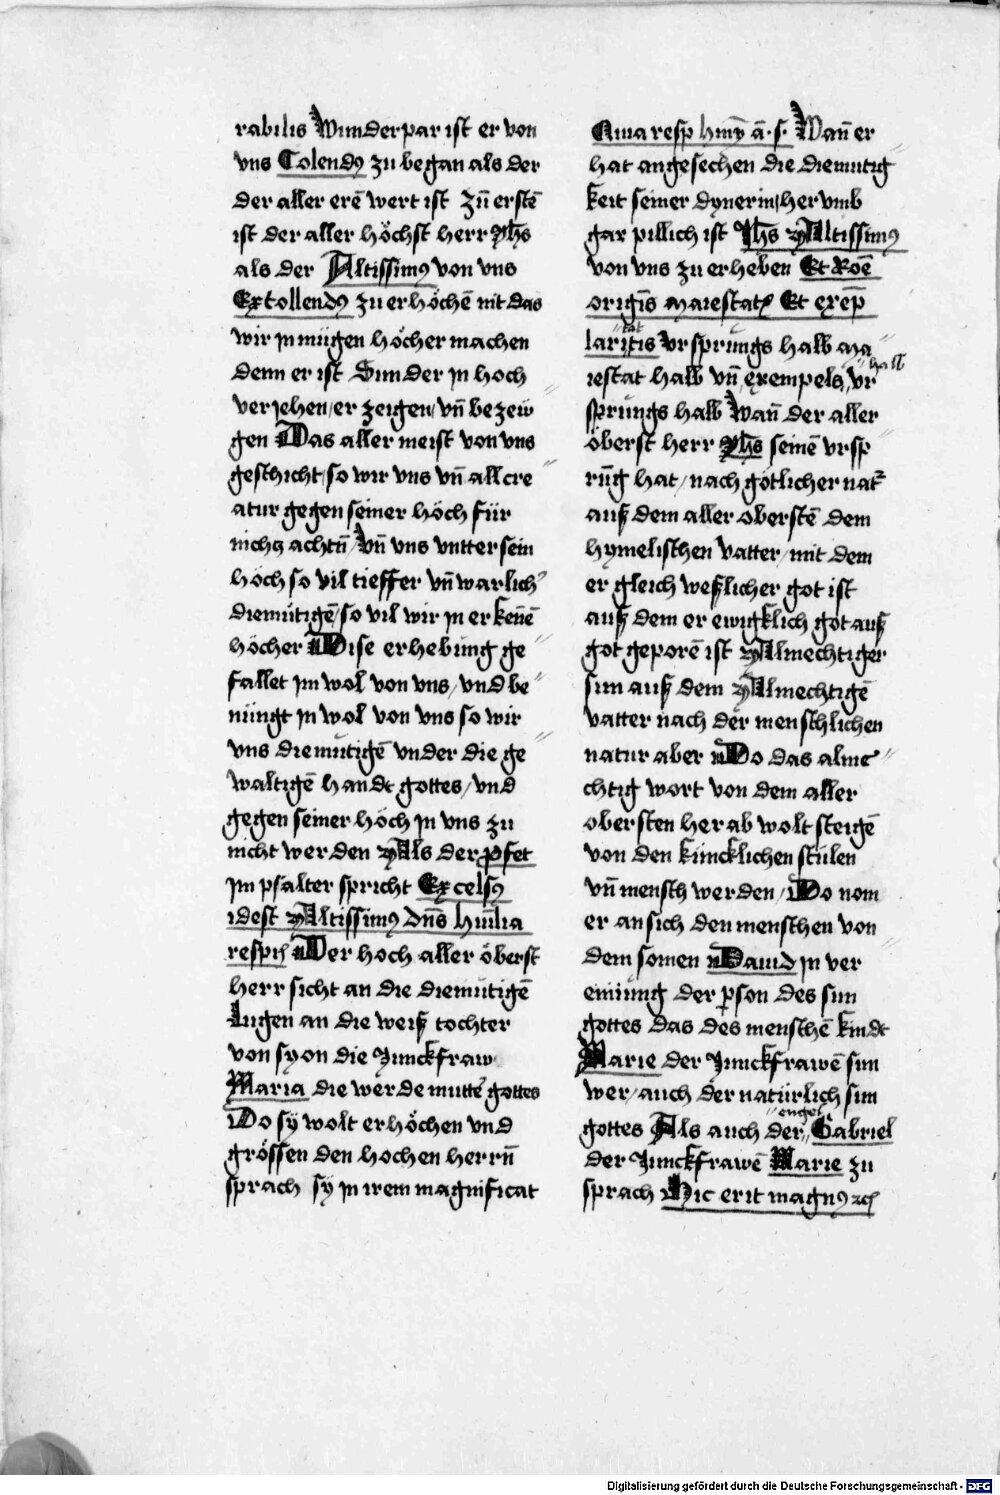 rabilis Wunderpar ist er von
vns Colendꝰ zu began als der
der aller erē wert ist zū erstē
ist der aller höchst herr Jhs
als der Altissimꝰ von vns
Extollendꝰ zu erhöchē nit das
wir jn mügen höcher machen
denn er ist Sunder jn hoch
verjehen / er zeigen / vn̄ bezew
gen Das aller meist von vns
geschicht / so wir vns vn̄ all cre
atur gegen seiner höch für
nichꝫ achtn̄ / Vn̄ vns vntter sein
höch so vil tieffer vn̄ warlich
diemütigē / so vil wir jn erkēnē
höcher Dise erhebung ge
fallet jm wol von vns / vnd be
nüngt jn wol von vns so wir
vns diemütigē vnder die ge
waltigē handt gottes / vnd
gegen seiner höch jn vns zu
nicht werden Als der ꝓfet
jm psalter spricht Excelsꝰ
idest Altissimꝰ dn̄s hu̅ilia
respiꝪ Der hoch aller öberst
herr sicht an die diemütigē
Augen an die weiß tochter
von syon die Junckfraw
Maria die werde mutter gottes
Do sÿ wolt erhöchen vnd
grössen den hochen herrn̄
sprach sy jn irem magnificat
Quia resp hmȳ ā. s. Wan̄ er
hat angesechen die diemutig
keit seiner dynerin / her vmb
gar pillich ist Jhs Altissimꝰ
von vns zu erheben Et Roē
origīs maiestatꝭ Et exēp
laritatis vrsprungs halb ma
iestat halb vn̄ exempels halb vr
sprungs halb Wan̄ der aller
öberst herr Jhs seinē vrsp
rūng hat / nach götlicher natꝛ
auß dem aller oberstē dem
hymelischen vatter / mit dem
er gleich weßlicher got ist
auß dem er ewigklich got auß
got geporē ist Almechtiger
sun auß dem Almechtigē
vatter nach der menschlichen
natur aber Do das alme
chtig wort von dem aller
obersten herab wolt steigē
von den künicklichen stülen
vn̄ mensch werden / Do nom
er an sich den menschen von
dem somen Dauid jn ver
einüng der ꝑson des sun
gottes das des menschē kindt
Marie der Junckfrawē sun
wer / auch der natürlich sun
gottes Als auch der engel Gabriel
der Junckfrawē Marie zu
sprach Hic erit magnꝰ ꝛcꝭ
Digitalisierung gefördert durch die Deutsche Forschungsgemeinschaft - DFG